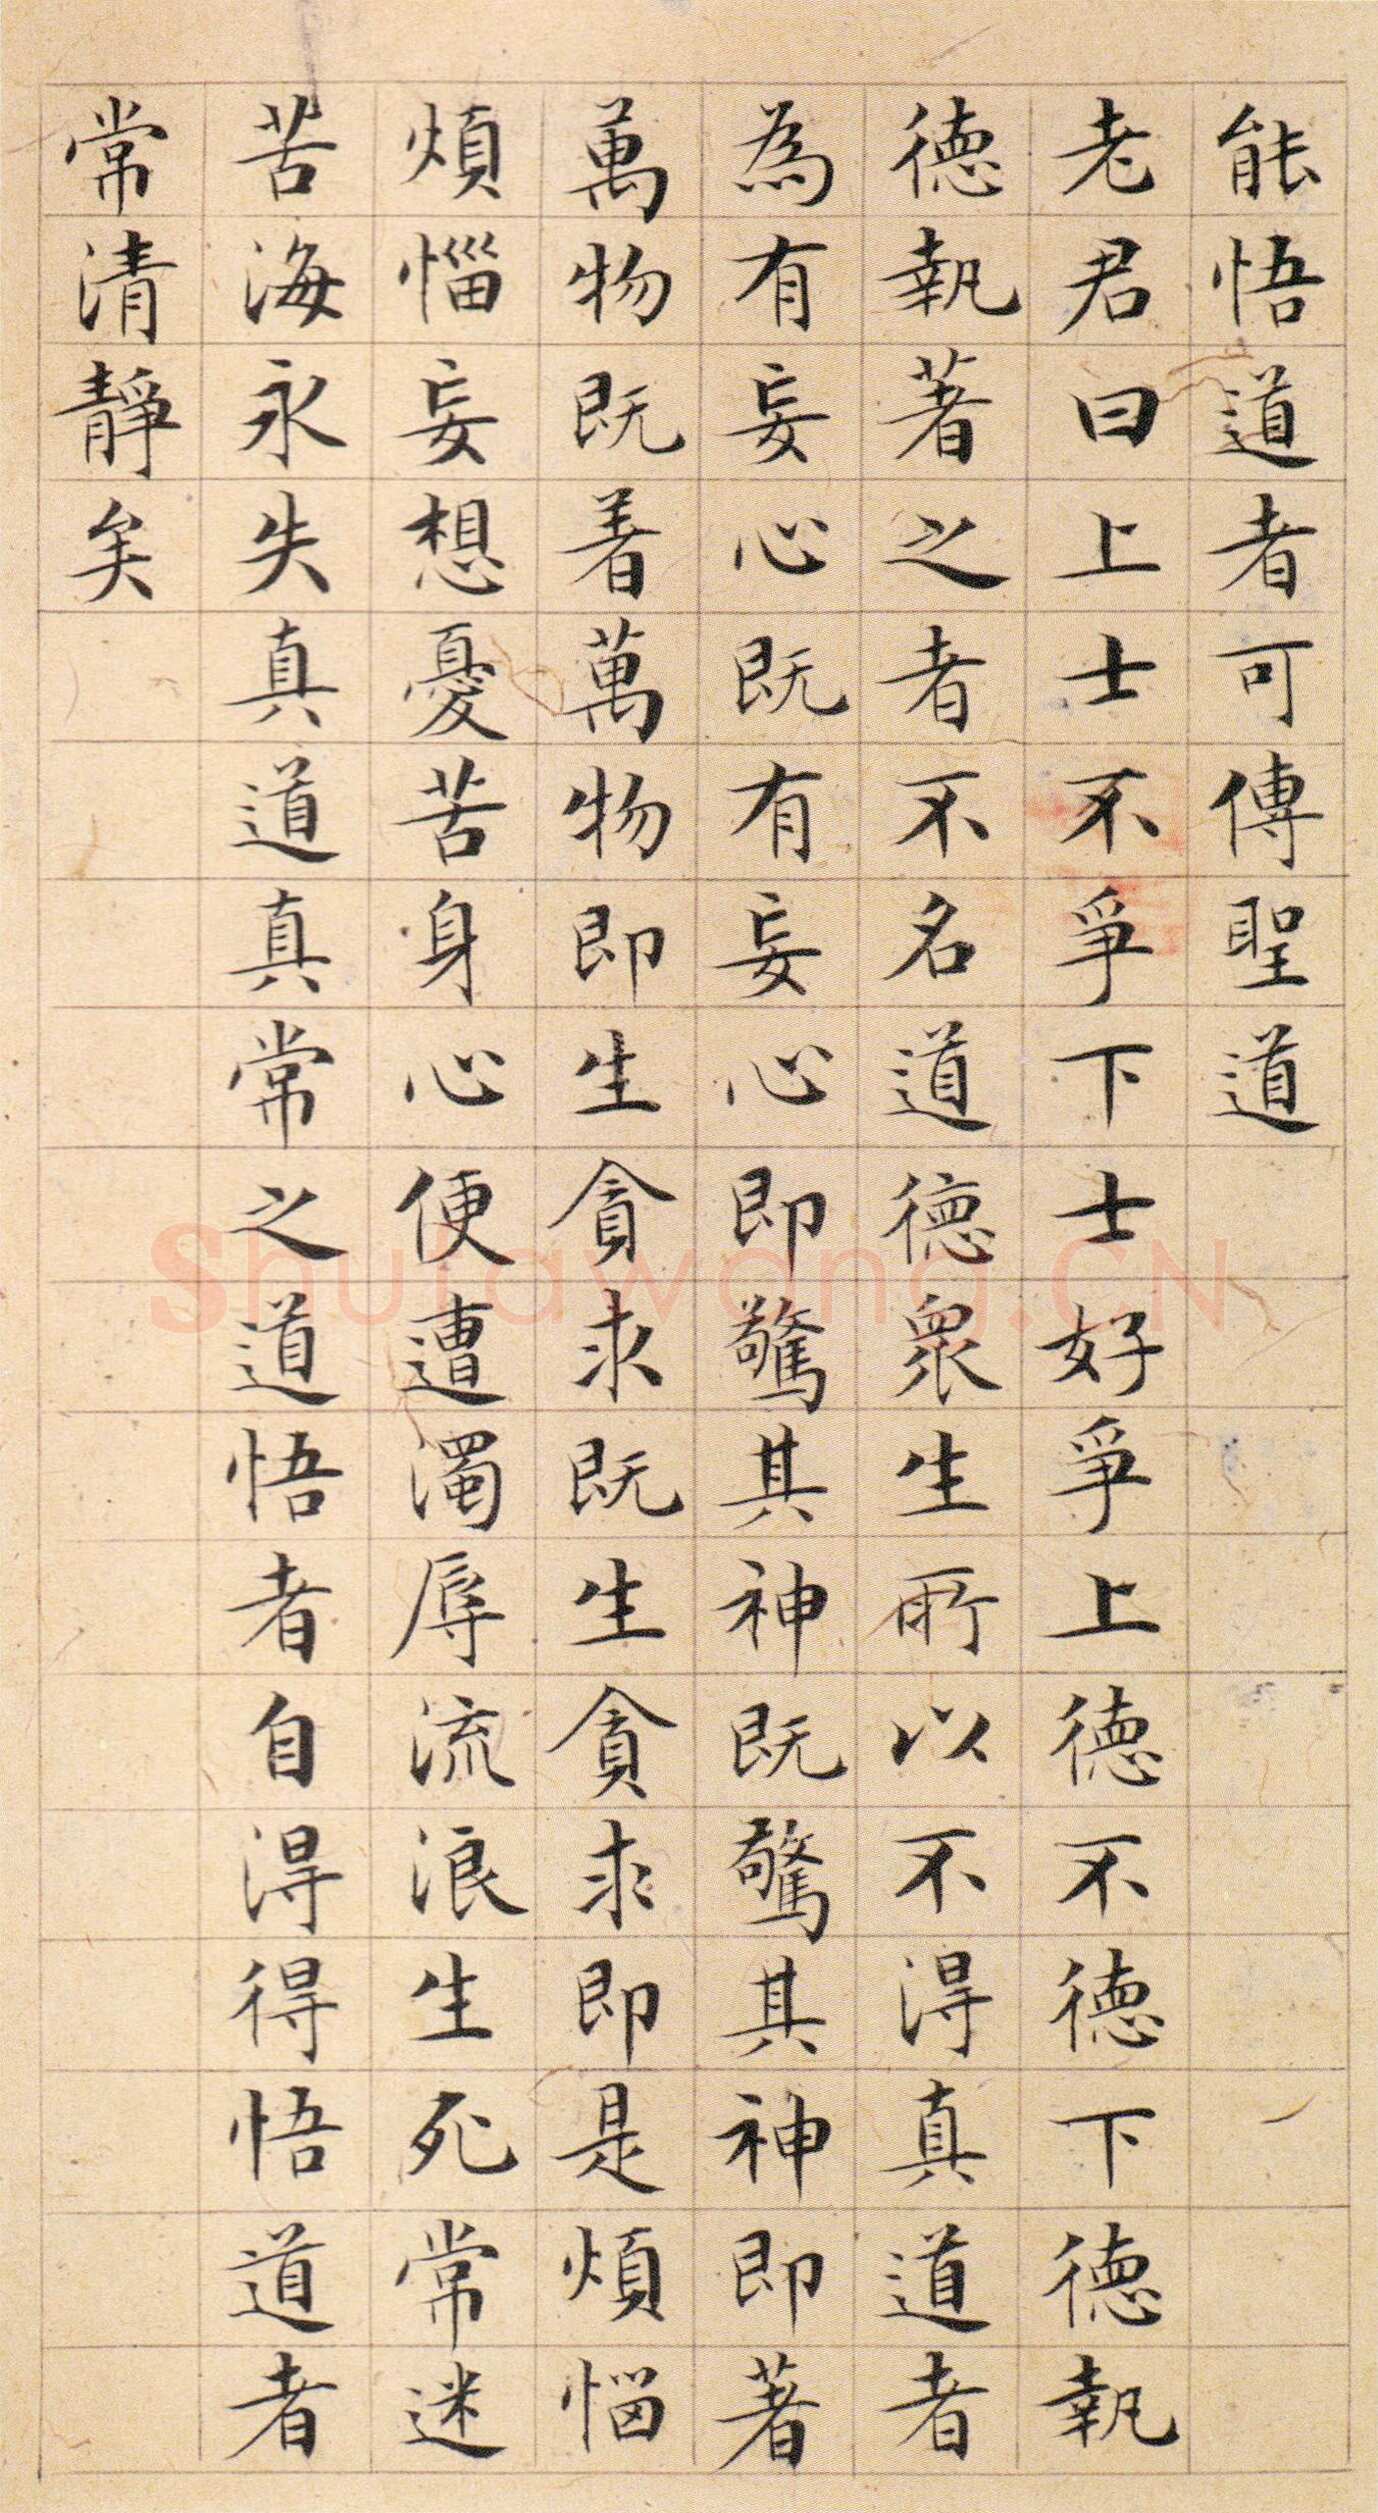 能悟道者可傳聖道
老君曰上士不爭下士好爭上德不德下德執
德執著之者不名道德衆生所以不得真道者
為有妄心既有妄心即驚其神既驚其神即著
萬物既着萬物即生貪求既生貪求即是煩惱
煩惱妄想憂苦身心便遭濁辱流浪生死常迷
苦海永失真道真常之道悟者自得得悟道者
常清靜矣
Shufawang.CN